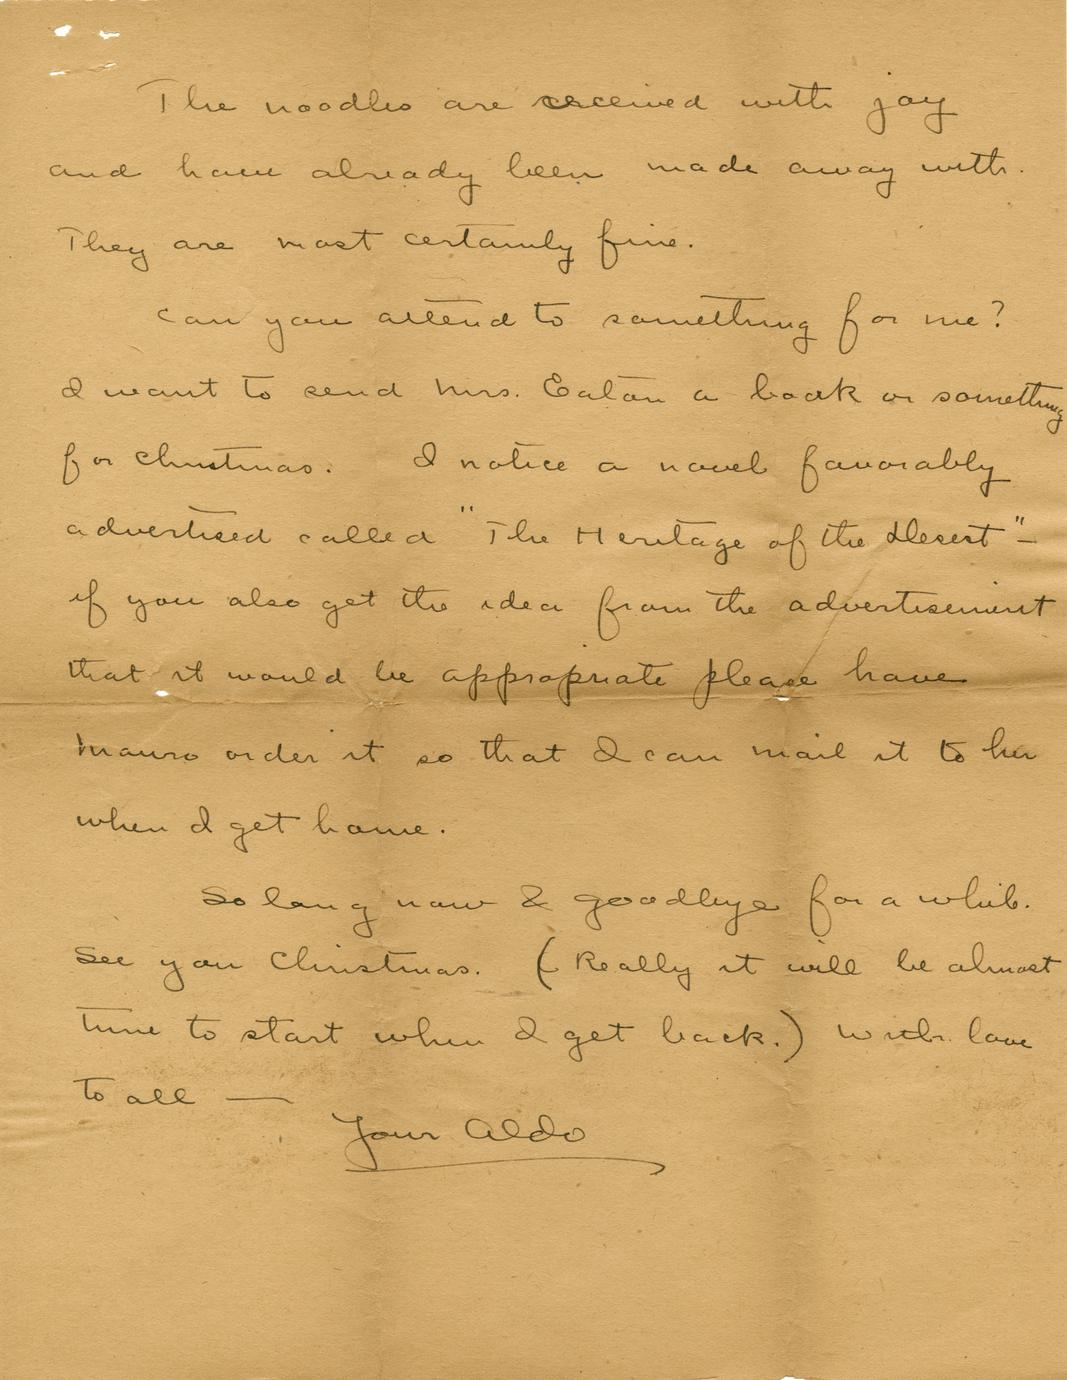 The noodles are received with joy
and have already been made away with.
They are most certainly fine.
Can you attend to something for me?
I want to send Mrs. Eaton a book or something
for Christmas. I notice a novel favorably
advertised called "The Heritage of the Desert" —
if you also get the idea from the advertisement
that it would be appropriate please have
Mauro order it so that I can mail it to her
when I get home.
So long now & goodbye for a while.
See you Christmas. (Really it will be almost
time to start when I get back.) With love
to all —
Your Aldo